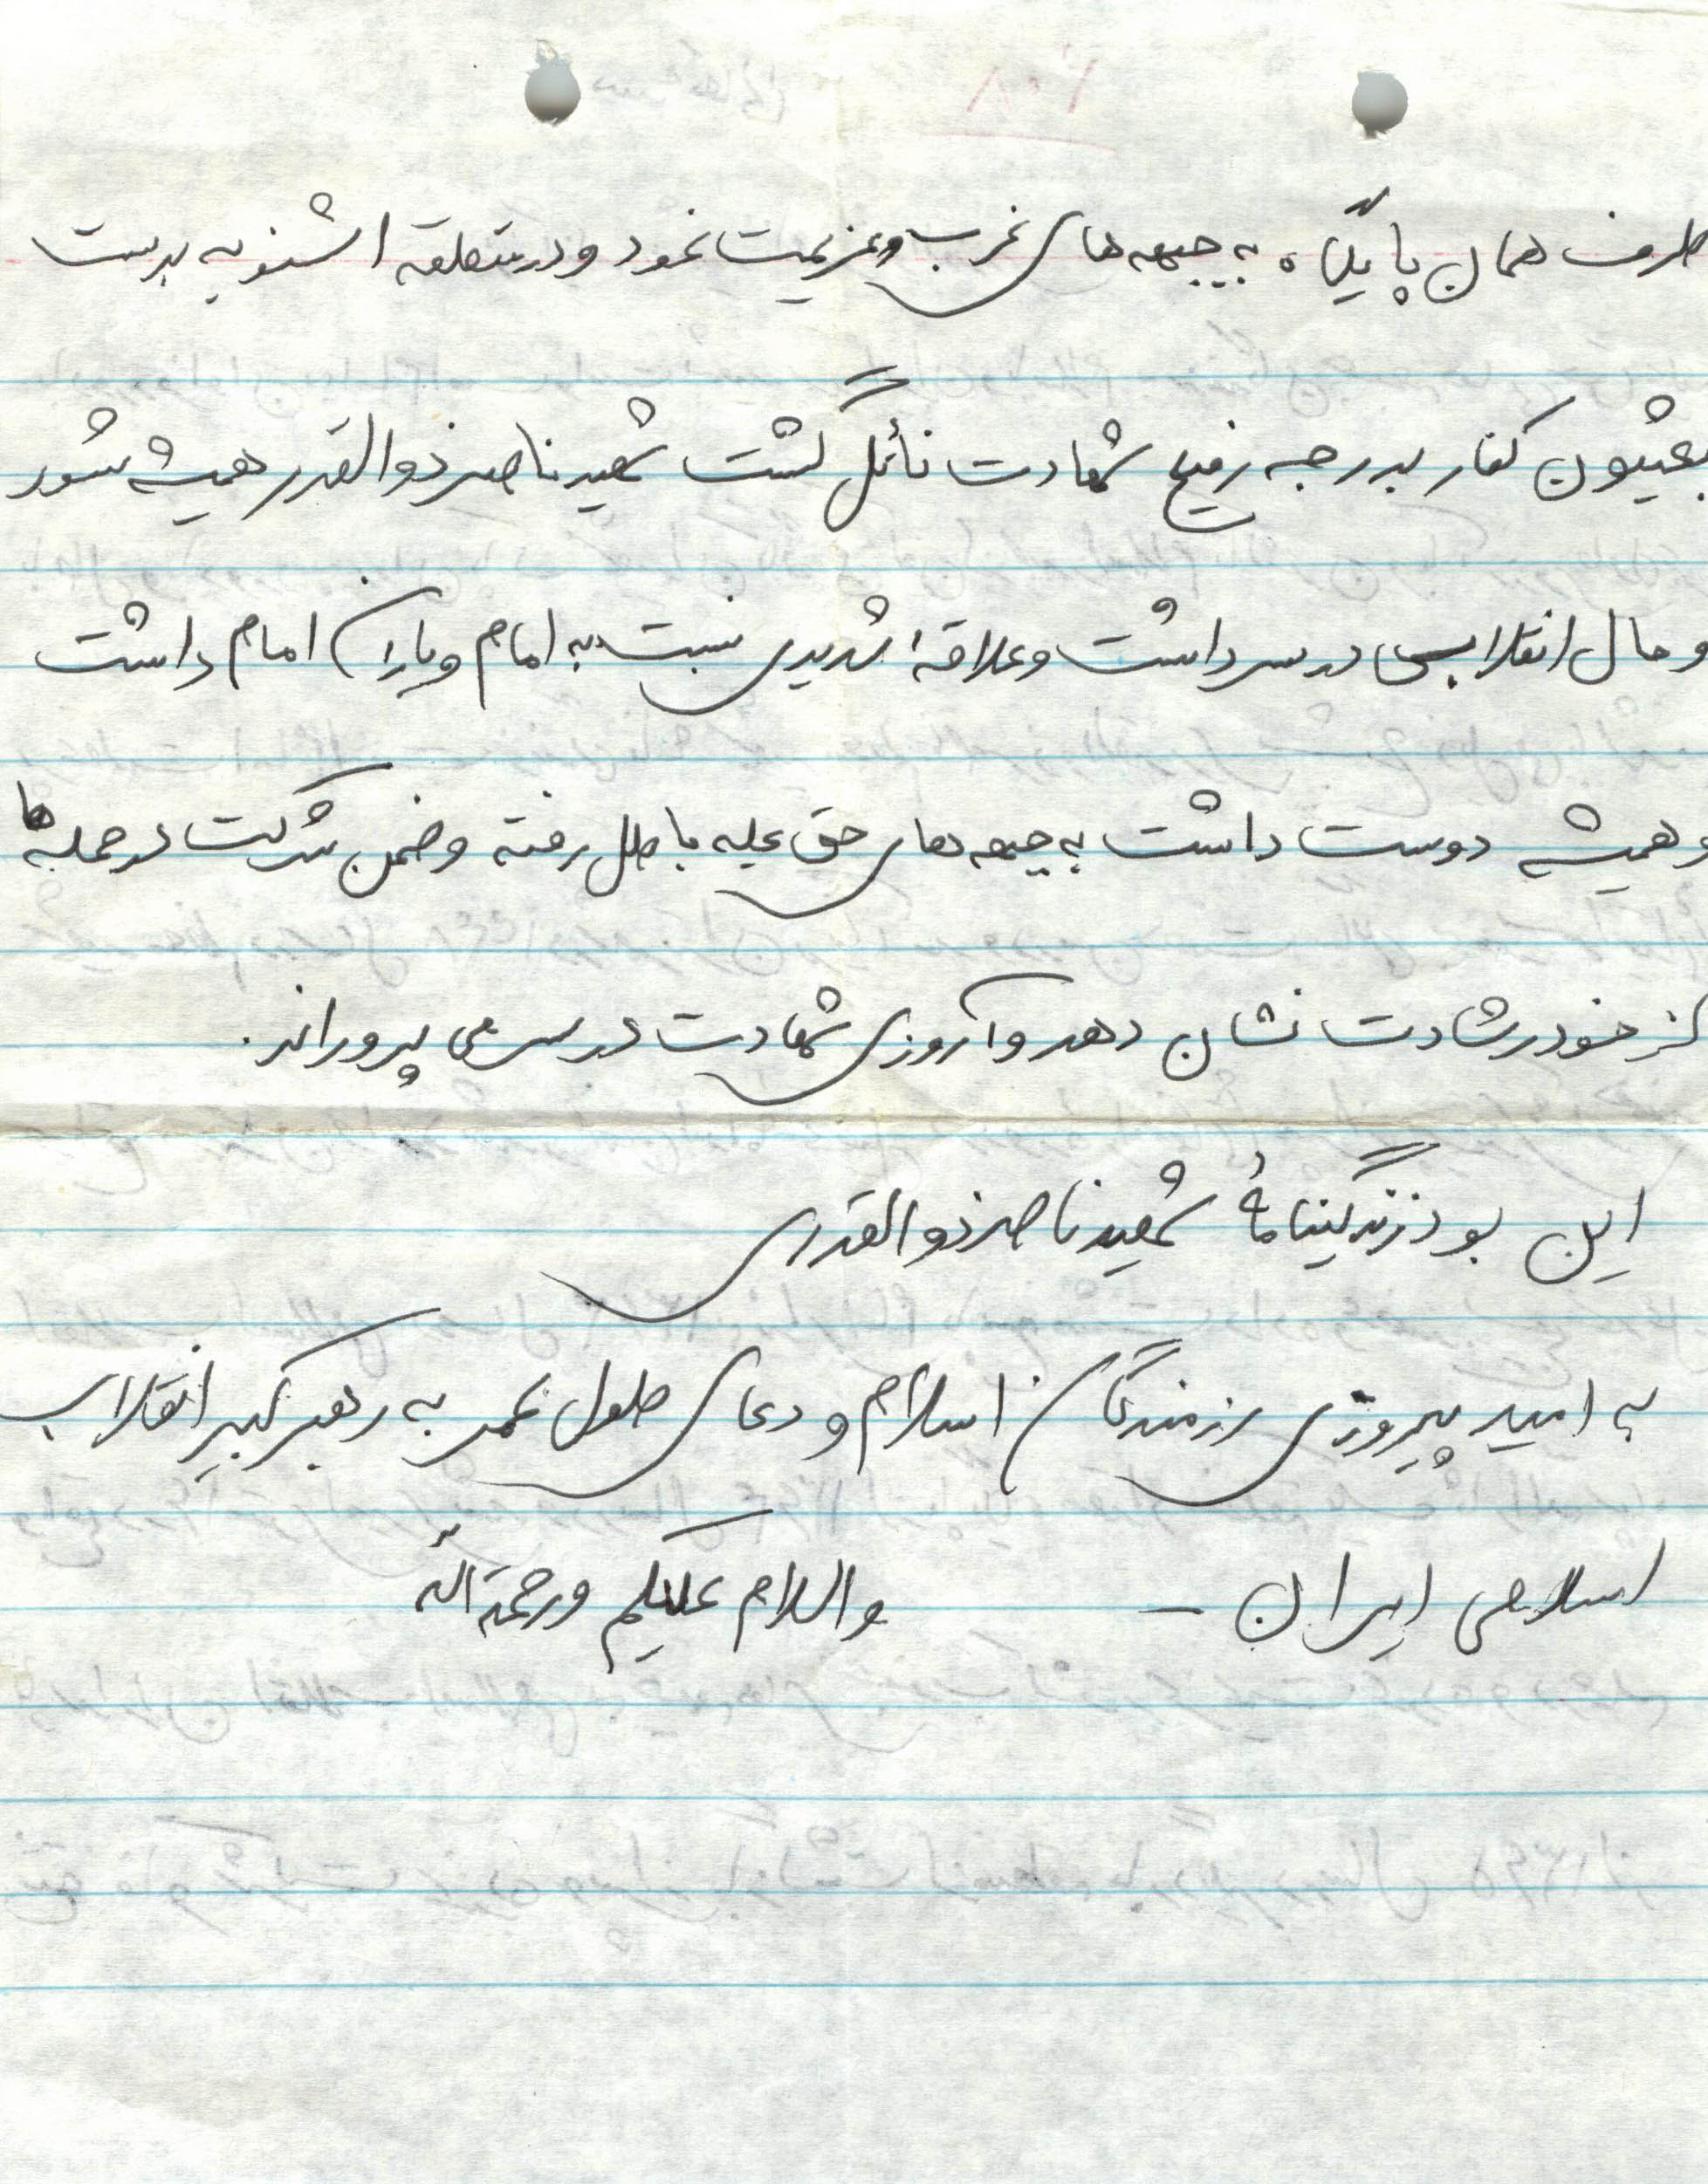 طرف همان پایگاه به جبهه های غرب وعزیمت نمود و در منطقه اشنویه بدست
بعثیون کفار بدرجه رفیع شهادت نائل گشت شهید ناصر ذوالقدر همیشه شور
و حال انقلابی در سر داشت و علاقه شدیدی نسبت به امام و یاران امام داشت
و همیشه دوست داشت به جبهه های حق علیه باطل رفته و ضمن شرکت در حمله ها
از خود رشادت نشان دهد و آرزوی شهادت در سر می پروراند.
این بود زندگینامهٔ شهید ناصر ذوالقدری
به امید پیروزی رزمندگان اسلام و دعای طول عمر به رهبر کبیر انقلاب
اسلامی ایران –      والسلام علیکم ورحمة الله